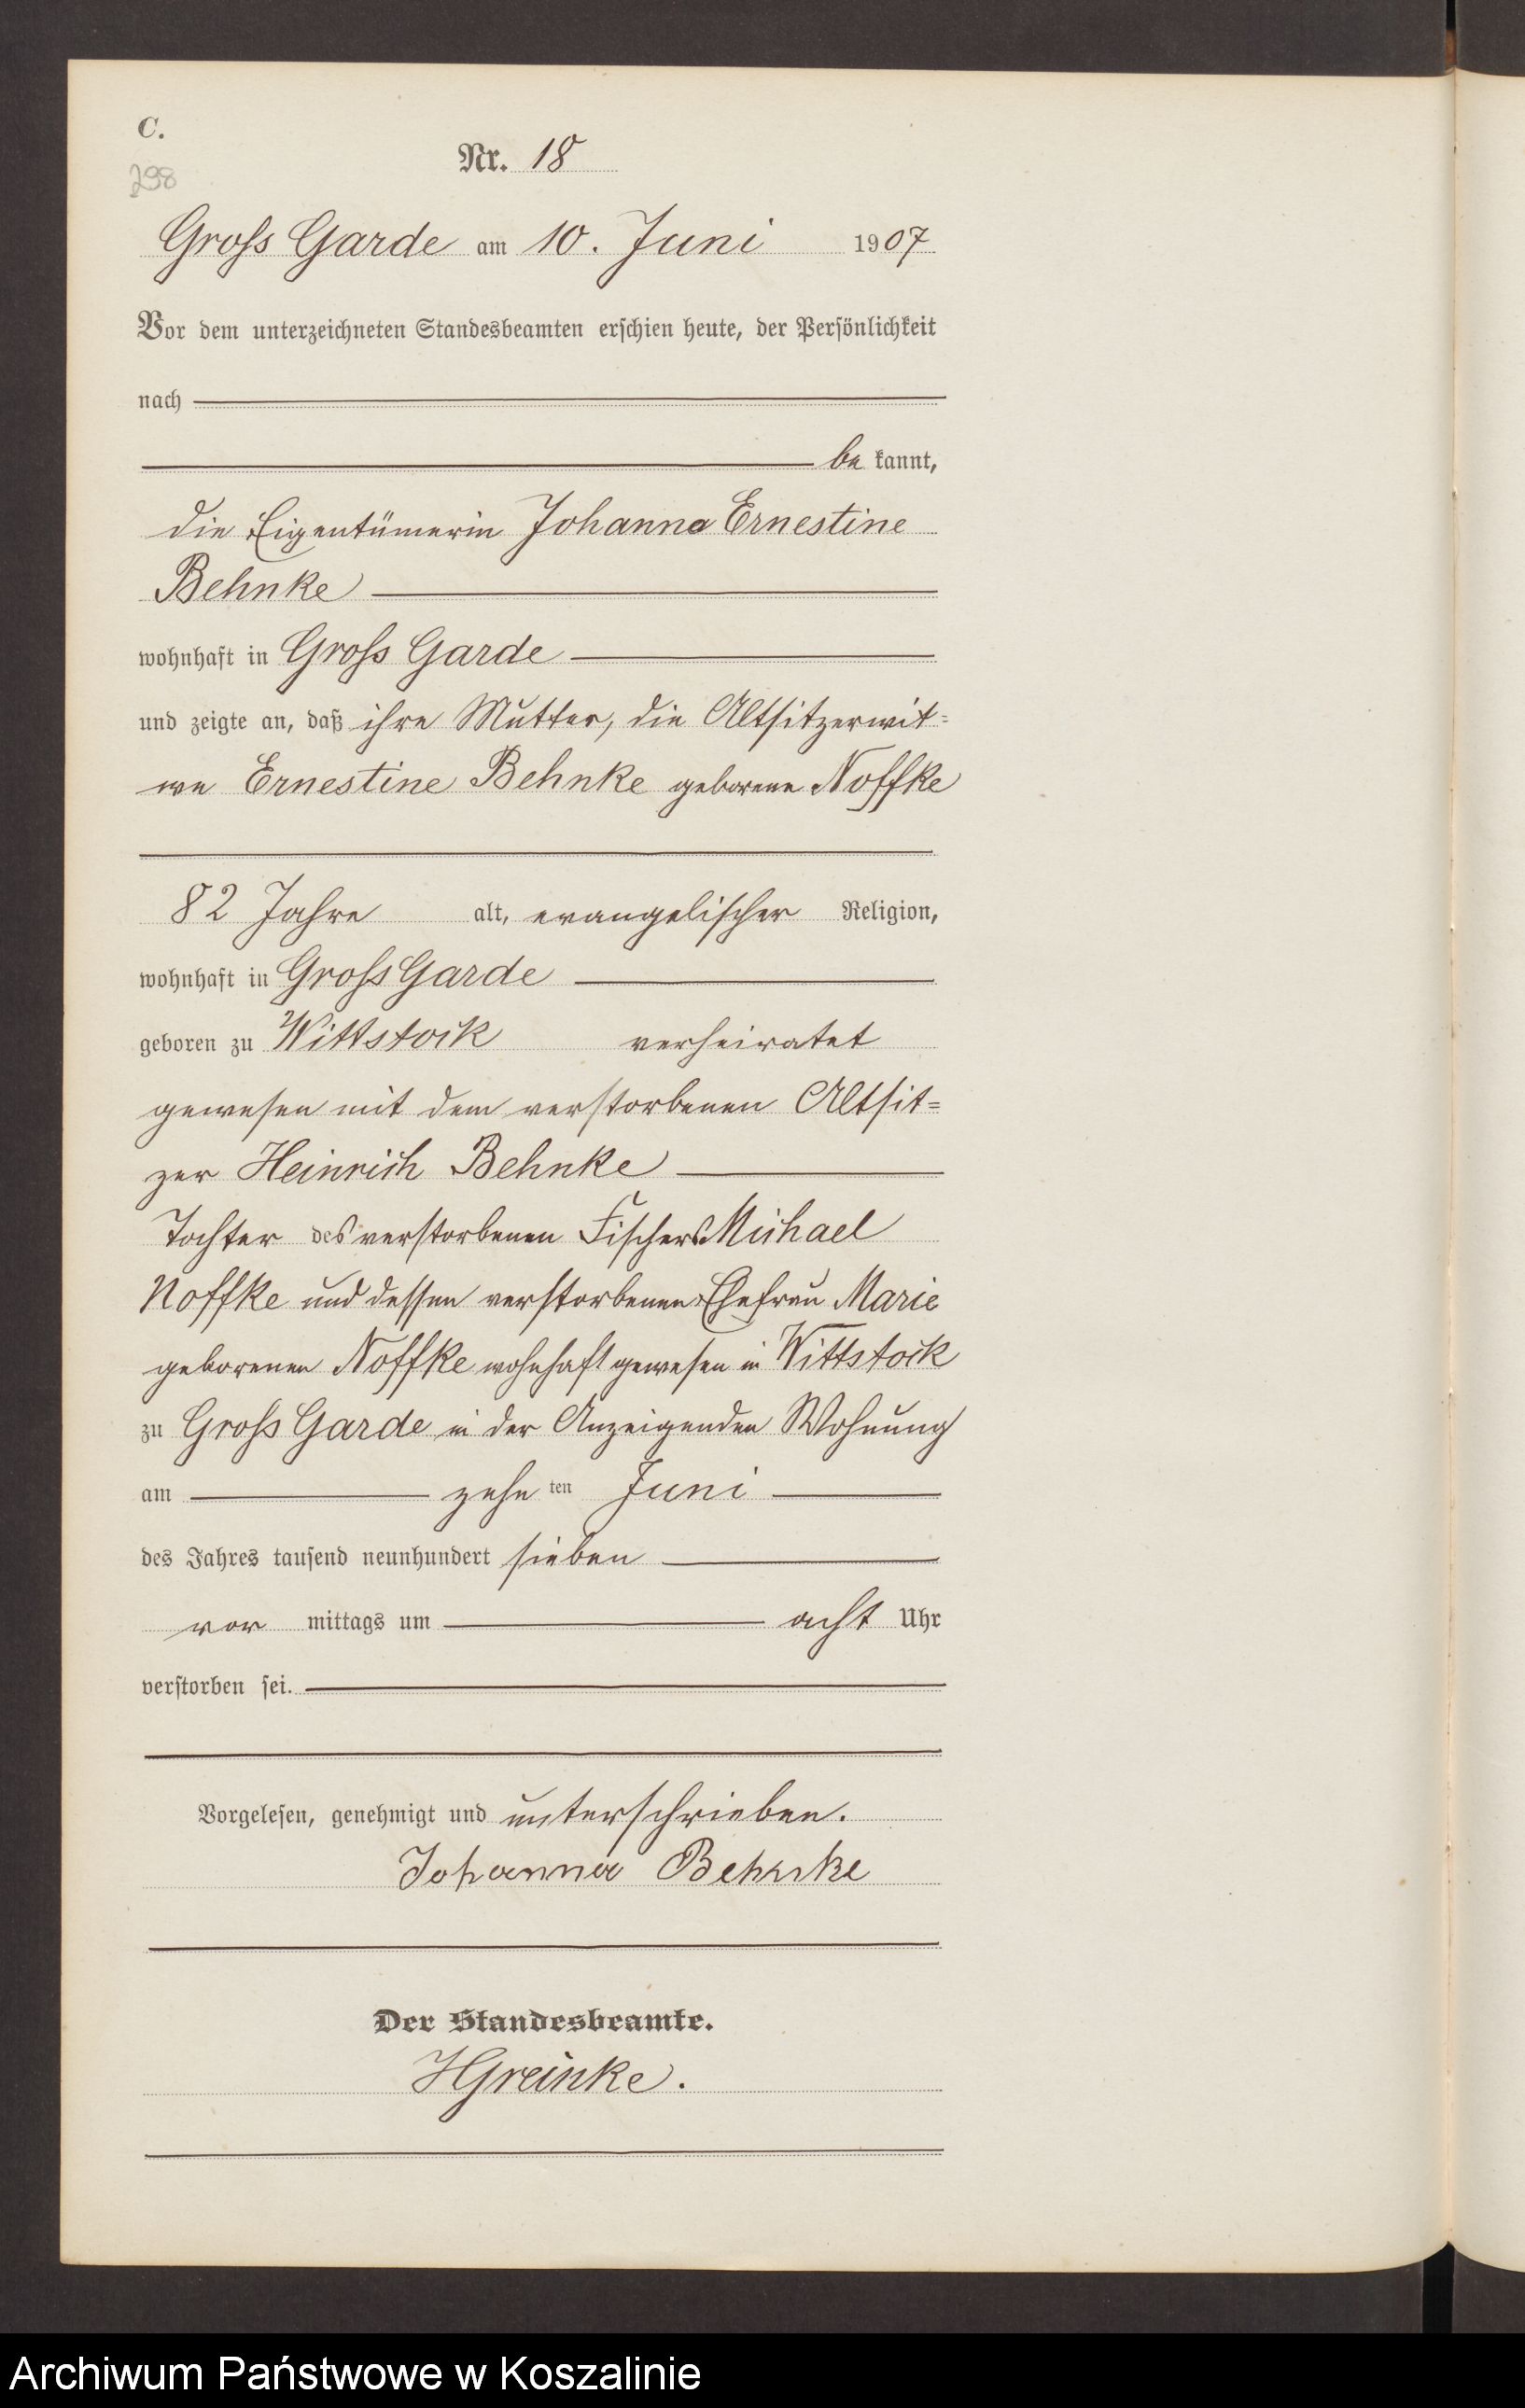 C.
Nr. 18
298
Gross Garde am 10. Juni 1907
Vor dem unterzeichneten Standesbeamten erschien heute, der Persönlichkeit
nach
be kannt,
die Eigentümerin Johanna Ernestine
Behnke
wohnhaft in Gross Garde
und zeigte an, daß ihre Mutter, die Altsitzerwit=
we Ernestine Behnke geborene Noffke
82 Jahre alt, evangelischer Religion,
wohnhaft in Gross Garde
geboren zu Wittstock verheiratet
gewesen mit dem verstorbenen Altsit=
zer Heinrich Behnke
Tochter des verstorbenen Fischers Michael
Noffke und dessen verstorbenen Ehefrau Marie
geborenen Noffke wohnhaft gewesen in Wittstock
zu Gross Garde in der Anzeigenden Wohnung
am zehn ten Juni
des Jahres tausend neunhundert sieben
vor mittags um acht Uhr
verstorben sei.
Vorgelesen, genehmigt und unterschrieben.
Johanna Behnke
Der Standesbeamte.
HGreinke.
Archiwum Państwowe w Koszalinie